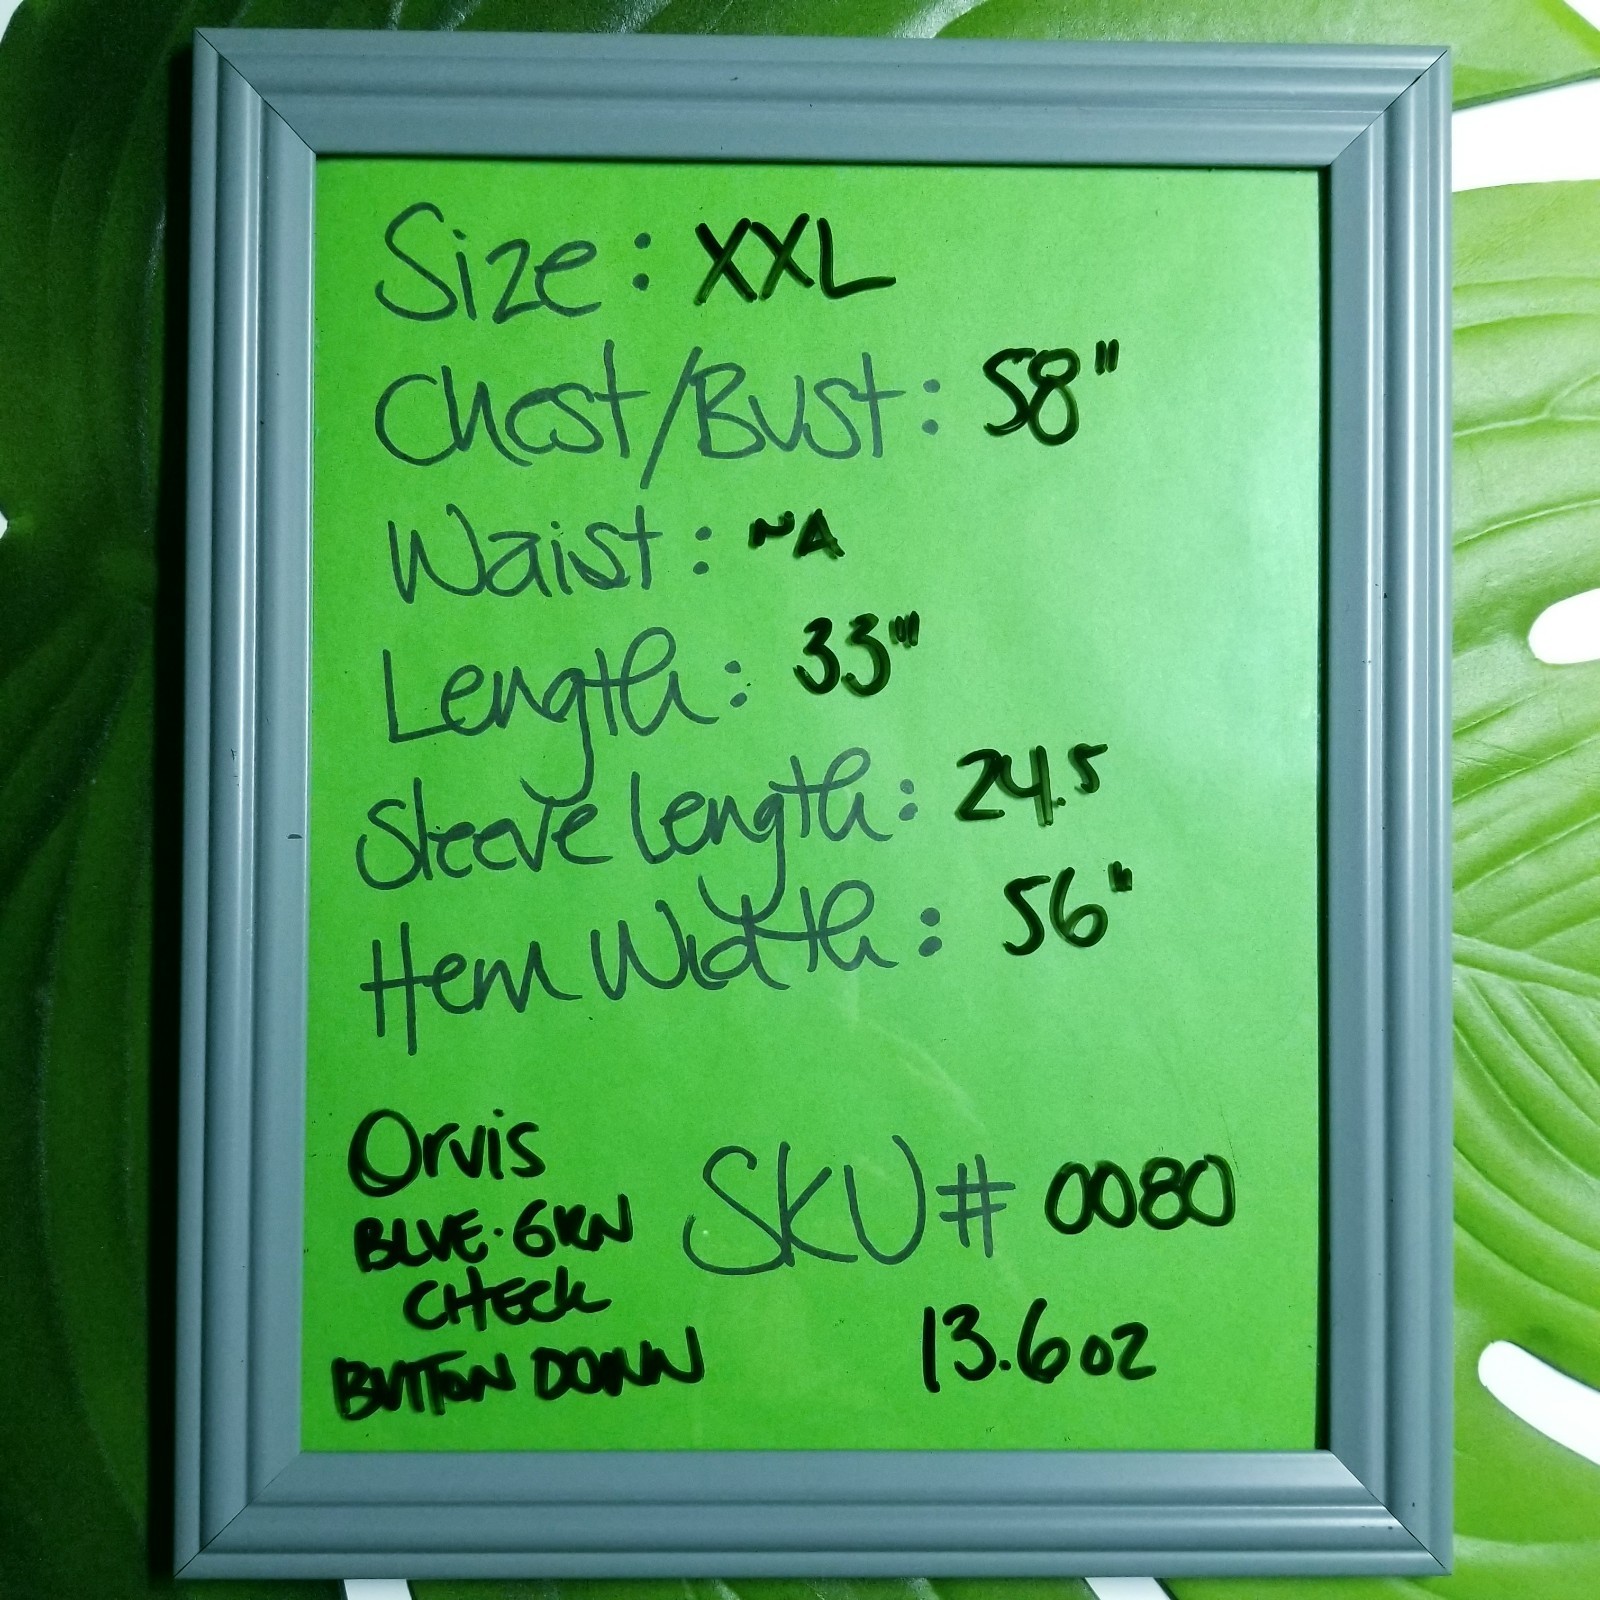 Size: XXL
Chest/Bust: 58"
Waist: NA
Length: 33"'
Sleeve Length: 24.5
Hem Width: 56"
Orvis
BLUE·GRN
CHECK
BUTTON DOWN
SKU# 0080
13.6oz